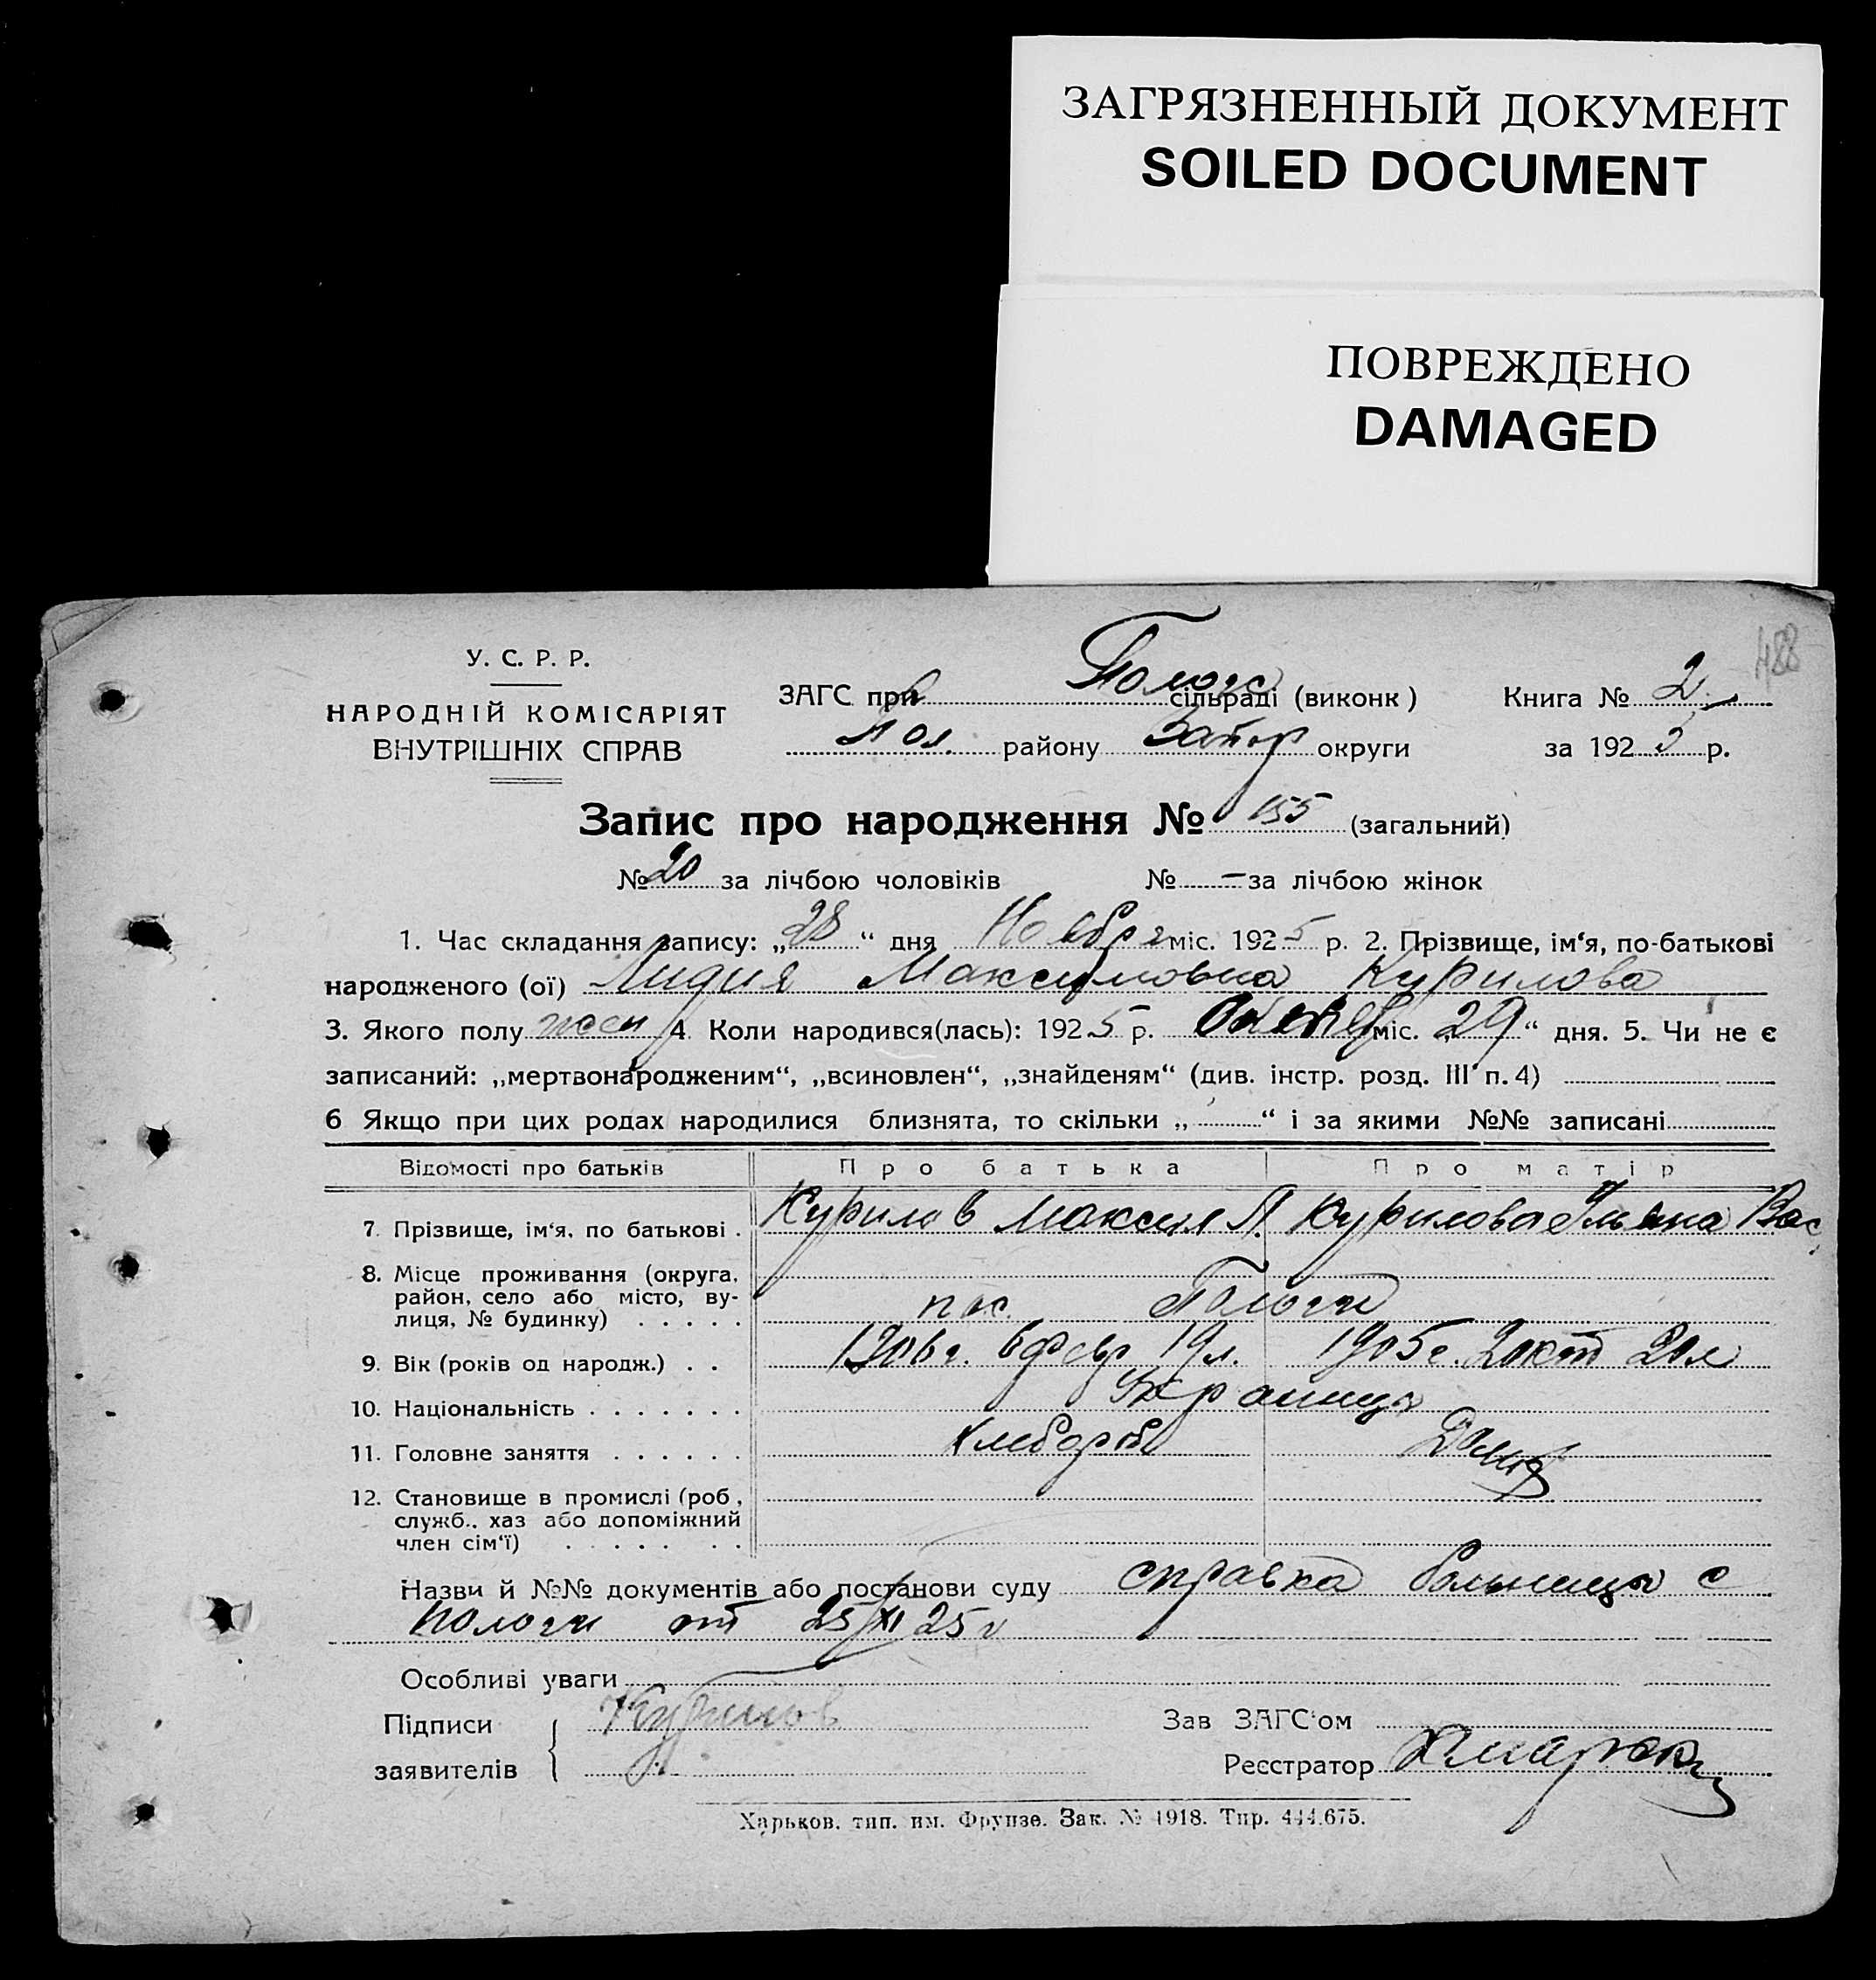 ЗАГРЯЗНЕННЫЙ ДОКУМЕНТ
SOILED DOCUMENT
ПОВРЕЖДЕНО
DAMAGED
488
У. С. Р. Р.
НАРОДНІЙ КОМІСАРІЯТ
ВНУТРІШНІХ СПРАВ
ЗАГС при Пологс сільраді (виконк) Книга № 2
Пол. району Запор округи за 1925 р.
Запис про народження № 155 (загальний)
№ 20 за лічбою чоловіків № — за лічбою жінок
1. Час складання запису: „28“ дня Ноября міс. 1925 р. 2. Прізвище, ім‘я, по-батькові
народженого (ої) Лидия Максимовна Курилова
3. Якого полу женс 4. Коли народився(лась): 1925 р. міс. „29“ дня. 5. Чи не є
записаний: „мертвонародженим“, „всиновлен“, „знайденям“ (див. інстр. розд. III п. 4)
6 Якщо при цих родах народилися близнята, то скільки „ “ і за якими №№ записані
Відомості про батьків Про батька Про матір
7. Прізвище, ім‘я, по батькові . Курилов Максим П. Курилова Ульяна Вас.
8. Місце проживання (округа,
район, село або місто, ву-
лиця, № будинку) . . . . . пос. Пологи
9. Вік (років од народж.) . . 1906 г. 6 февр 19 л. 1905 г. 2 окт 20 л
10. Національність . . . . . . . Украинцы
11. Головне заняття . . . . . . хлебороб
12. Становище в промислі (роб,
служб., хаз або допоміжний
член сім‘ї) . . . . . . .
Назви й №№ документів або постанови суду справка больницы с
Пологи от 25/XI 25 г
Особливі уваги
Підписи Курилов Зав ЗАГС‘ом
заявителів Реєстратор
Харьков. тип. им. Фрунзе. Зак. № 4918. Тир. 444.675.